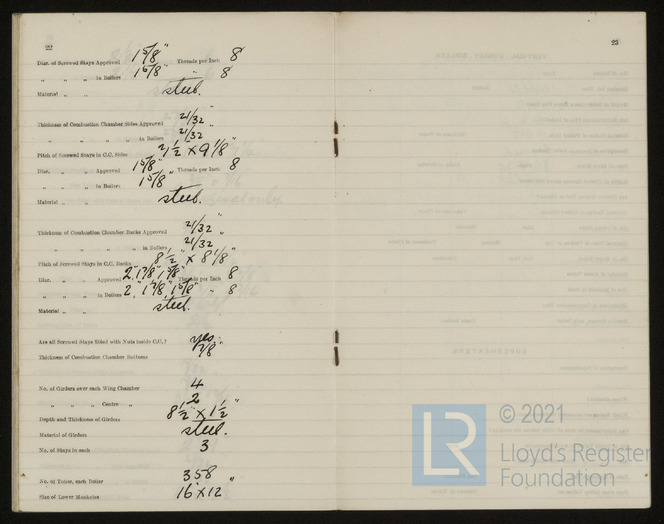 22
Diar. of Screwed Stays Approved 1 5/8" Threads per Inch 8
„ „ „ in Boilers 1 5/8" „ 8
Material „ „ steel.
Thickness of Combustion Chamber Sides Approved 21/32"
„ „ „ „ in Boilers 21/32"
Pitch of Screwed Stays in C.C. Sides × 9 1/8"
Diar. „ „ Approved 1 5/8" Threads per Inch 8
„ „ „ in Boilers 1 5/8" „ 8
Material „ „ steel.
Thickness of Combustion Chamber Backs Approved 21/32"
„ „ „ „ in Boilers 21/32"
Pitch of Screwed Stays in C.C. Backs 8 1/2" × 8 1/8"
Diar. „ „ Approved 2", 1 7/8", 1 5/8" Threads per Inch 8
„ „ „ in Boilers 2", 1 7/8", 1 5/8" „ 8
Material „ „ steel.
Are all Screwed Stays fitted with Nuts inside C.C.? yes.
Thickness of Combustion Chamber Bottoms 7/8"
No. of Girders over each Wing Chamber 4
„ „ „ Centre „ 2
Depth and Thickness of Girders 8 1/2" × 1 1/2"
Material of Girders steel.
No. of Stays in each 3
No. of Tubes, each Boiler 358
Size of Lower Manholes 16" × 12"
23
LR
© 2021
Lloyd's Register
Foundation